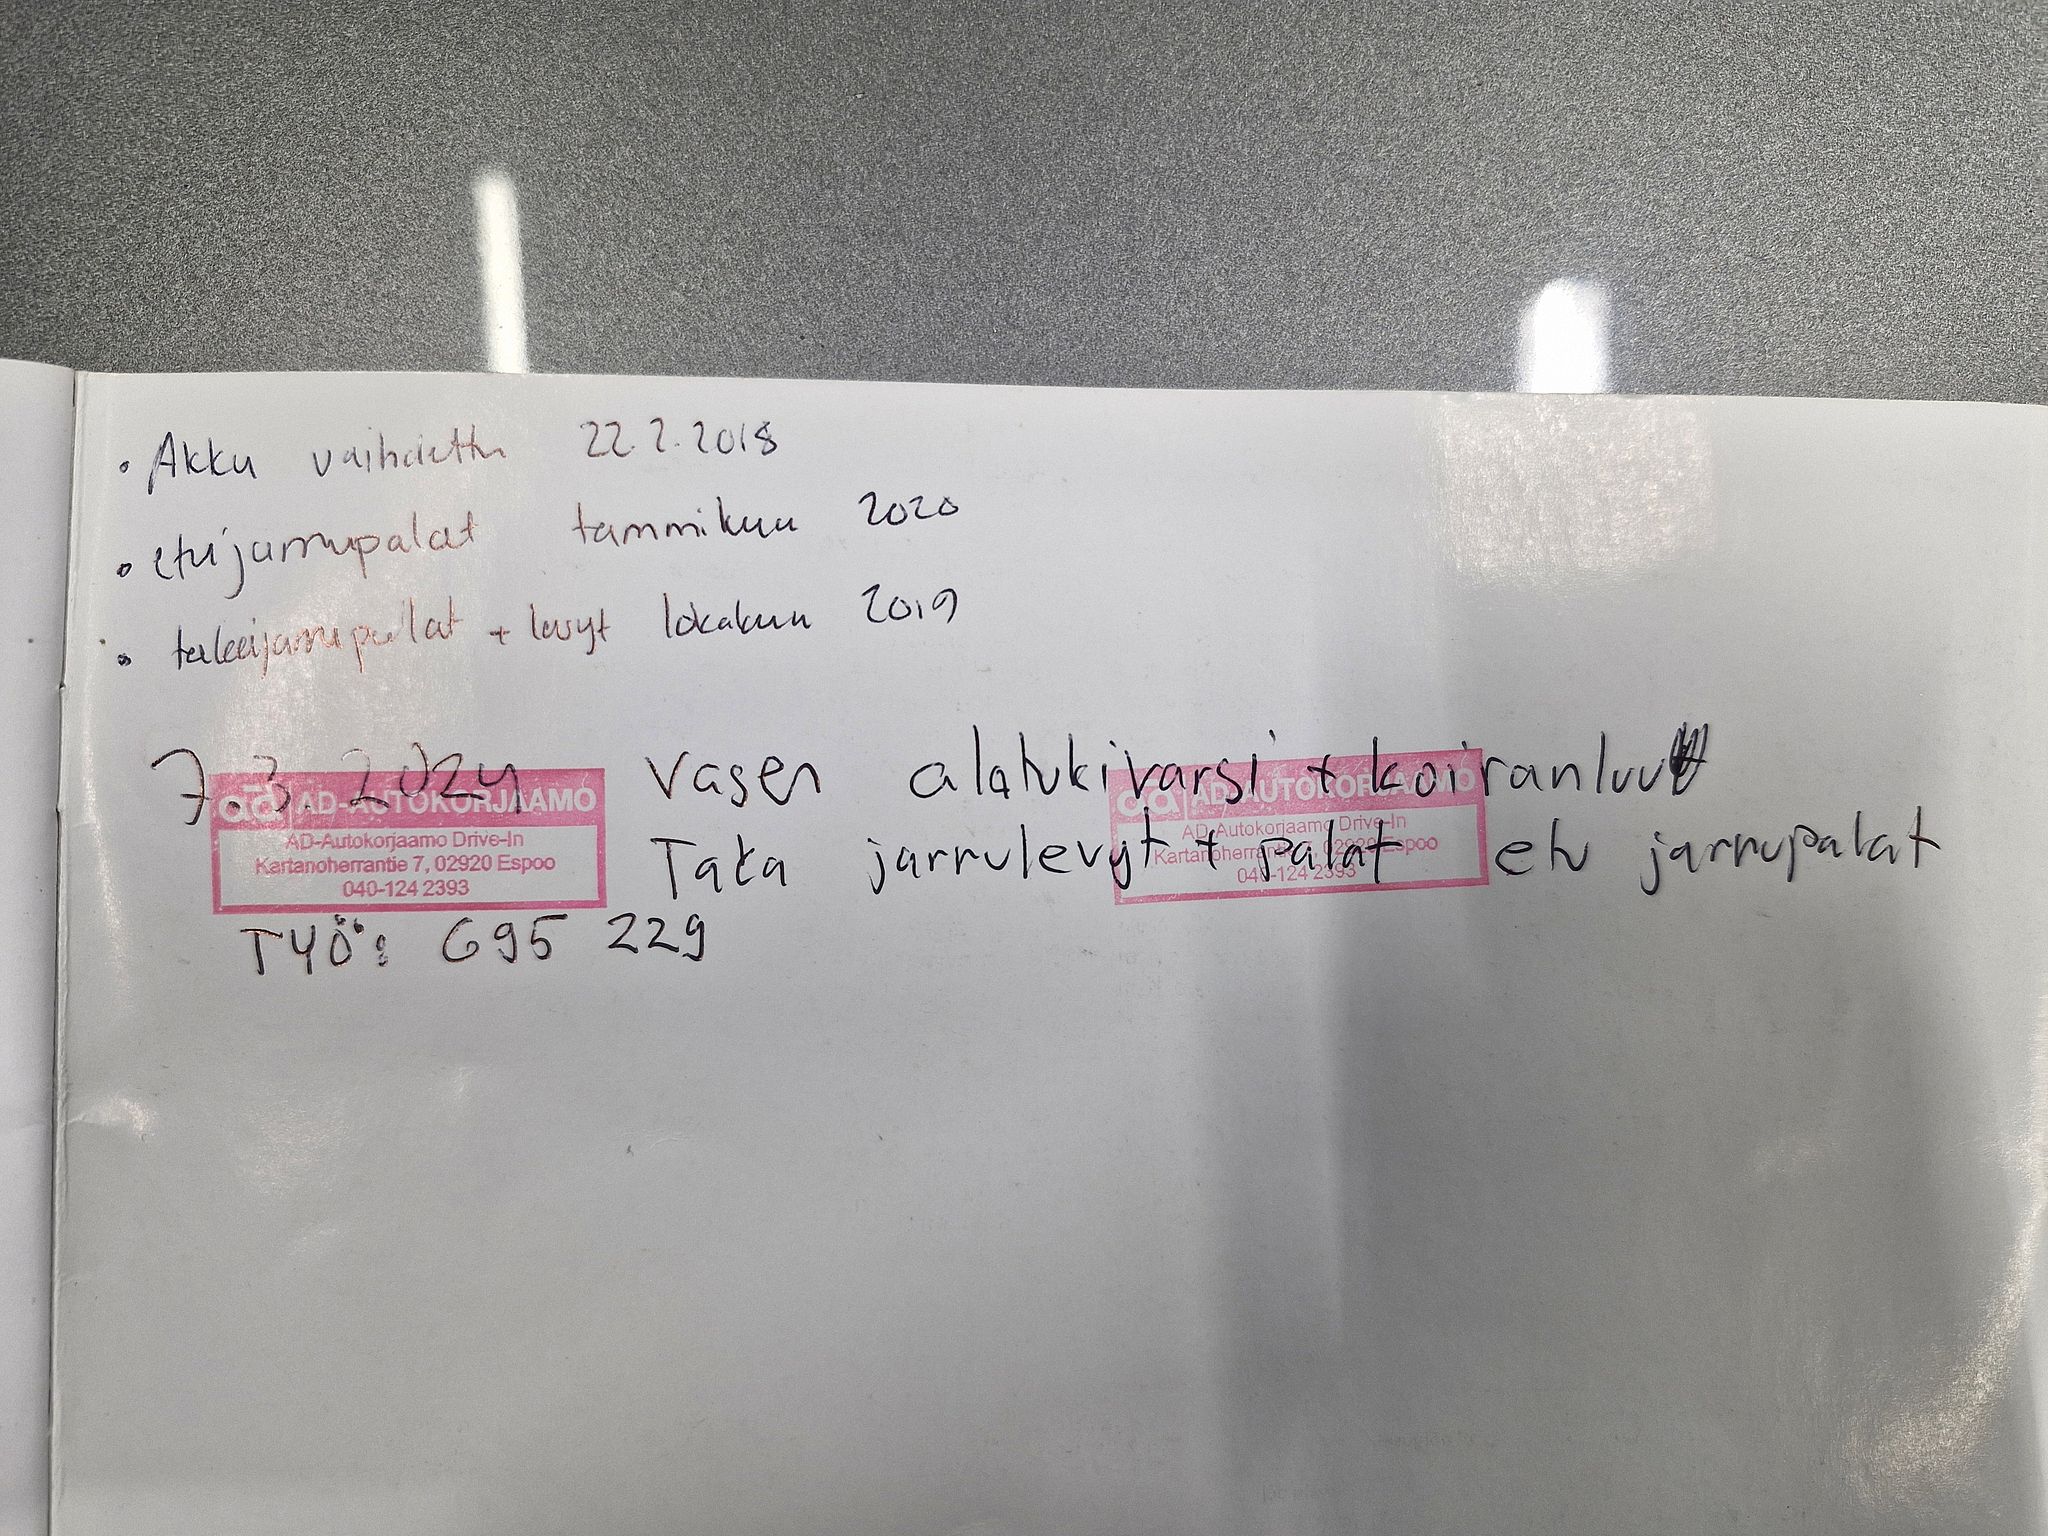 • Akku vaihdettu 22.2.2018
• etujarrupalat tammikuu 2020
• takajarrupalat + levyt lokakuu 2019
7.3.2024 vasen alatukivarsi + koiranluu
ad AD-AUTOKORJAAMO
AD-Autokorjaamo Drive-In
Kartanoherrantie 7, 02920 Espoo
040-124 2393
ad AD-AUTOKORJAAMO
AD-Autokorjaamo Drive-In
Kartanoherrantie 7, 02920 Espoo
040-124 2393
Taka jarrulevyt + palat etu jarrupalat
TYÖ: 695 229